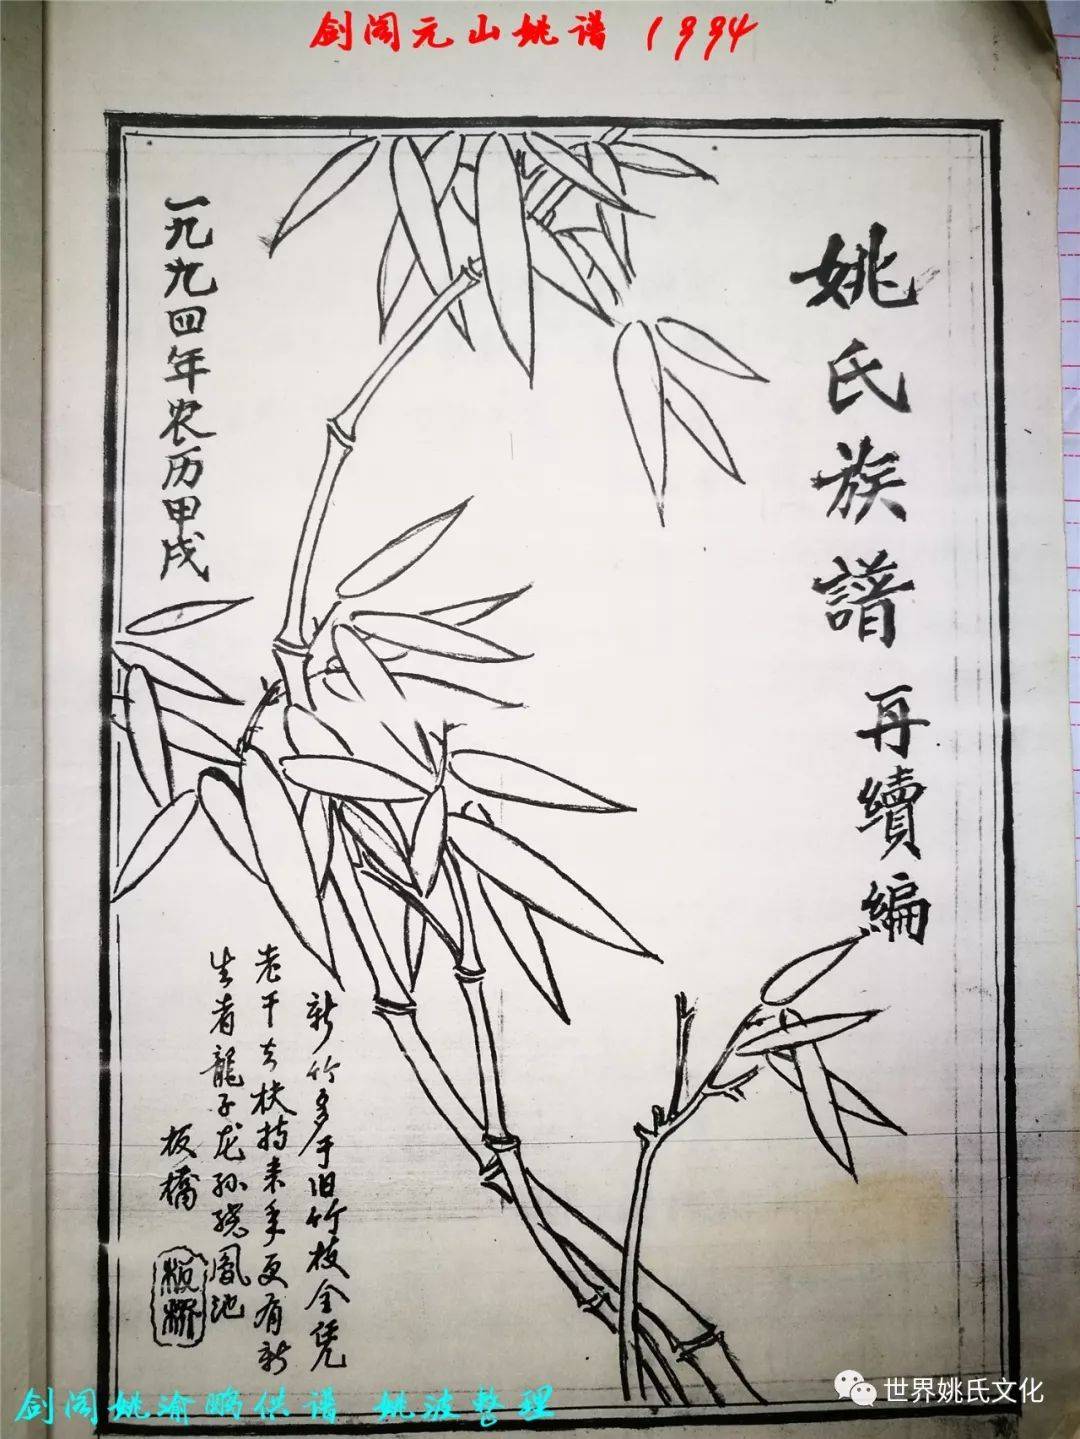 剑阁元山姚谱 1994
姚氏族譜 再續編
一九九四年农历甲戌
新竹多于旧竹枝全凭
老干为扶持来年更有新
生者龍子龙孙绕鳳池
板橋
板桥
剑阁姚渝鹏供谱 姚波整理
世界姚氏文化